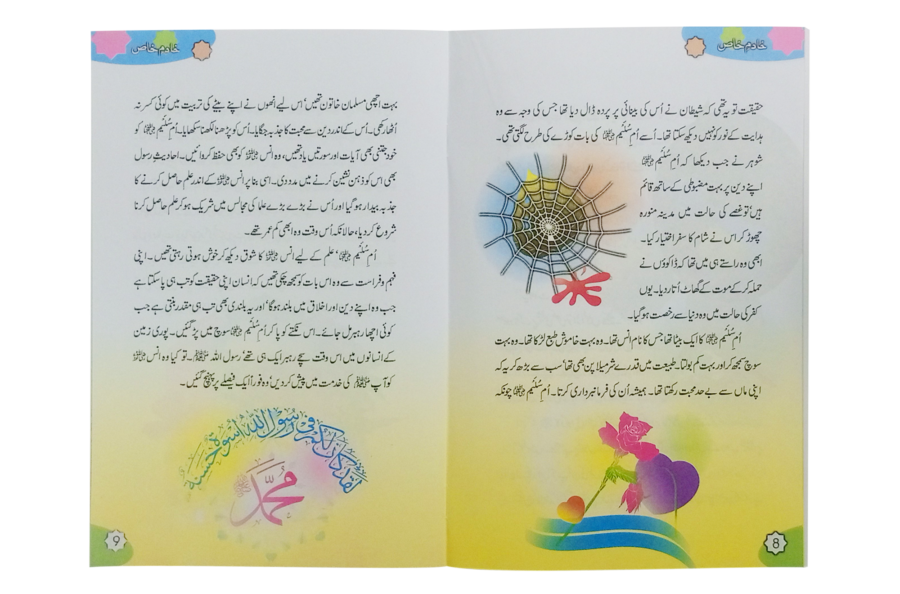 خادمِ خاص
حقیقت تو یہ تھی کہ شیطان نے اُس کی بینائی پر پردہ ڈال دیا تھا جس کی وجہ سے وہ
ہدایت کے نور کو نہیں دیکھ سکتا تھا۔ اُسے اُمّ سُلَیم رضی اللہ عنہا کی بات کوڑے کی طرح لگتی تھی۔
شوہر نے جب دیکھا کہ اُمّ سُلَیم رضی اللہ عنہا
اپنے دین پر بہت مضبوطی کے ساتھ قائم
ہیں تو غصے کی حالت میں مدینہ منورہ
چھوڑ کر اس نے شام کا سفر اختیار کیا۔
ابھی وہ راستے ہی میں تھا کہ ڈاکوؤں نے
حملہ کر کے موت کے گھاٹ اُتار دیا۔ یوں
کفر کی حالت میں وہ دنیا سے رخصت ہو گیا۔
اُمّ سُلَیم رضی اللہ عنہا کا ایک بیٹا تھا جس کا نام انس تھا۔ وہ بہت خاموش طبع لڑکا تھا۔ وہ بہت
سوچ سمجھ کر اور بہت کم بولتا۔ طبیعت میں قدرے شرمیلا پن بھی تھا‘ سب سے بڑھ کر یہ کہ
اپنی ماں سے بے حد محبت رکھتا تھا۔ ہمیشہ اُن کی فرمانبرداری کرتا۔ اُمّ سُلَیم رضی اللہ عنہا چونکہ
8
خادمِ خاص
بہت اچھی مسلمان خاتون تھیں‘ اس لیے انھوں نے اپنے بیٹے کی تربیت میں کوئی کسر نہ
اُٹھا رکھی۔ اُس کے اندر دین سے محبت کا جذبہ جگایا۔ اُس کو پڑھنا لکھنا سکھایا۔ اُمّ سُلَیم رضی اللہ عنہا کو
خود جتنی بھی آیات اور سورتیں یاد تھیں، وہ انس رضی اللہ عنہ کو بھی حفظ کروائیں۔ احادیثِ رسول
بھی اس کو ذہن نشین کرنے میں مدد دی۔ اسی بنا پر انس رضی اللہ عنہ کے اندر علم حاصل کرنے کا
جذبہ بیدار ہو گیا اور اُس نے بڑے بڑے علما کی مجالس میں شریک ہو کر علم حاصل کرنا
شروع کر دیا، حالانکہ اُس وقت وہ ابھی کم عمر تھے۔
اُمّ سُلَیم رضی اللہ عنہا‘ علم کے لیے انس رضی اللہ عنہ کا شوق دیکھ کر خوش ہوتی رہتی تھیں۔ اپنی
فہم و فراست سے وہ اس بات کو سمجھ چکی تھیں کہ انسان اپنی حقیقت کو تب ہی پا سکتا ہے
جب وہ اپنے دین اور اخلاق میں بلند ہو گا‘ اور یہ بلندی بھی تب ہی مقدر بنتی ہے جب
کوئی اچھا رہبر مل جائے۔ اس نکتے کو پا کر اُمّ سُلَیم رضی اللہ عنہا سوچ میں پڑ گئیں۔ پوری زمین
کے انسانوں میں اس وقت سچے رہبر ایک ہی تھے‘ رسول اللہ ﷺ۔ تو کیا وہ انس رضی اللہ عنہ
کو آپ ﷺ کی خدمت میں پیش کر دیں‘ وہ فوراً ایک فیصلے پر پہنچ گئیں۔
لقد كان لكم في رسول الله أسوة حسنة
مُحَمَّد ﷺ
9